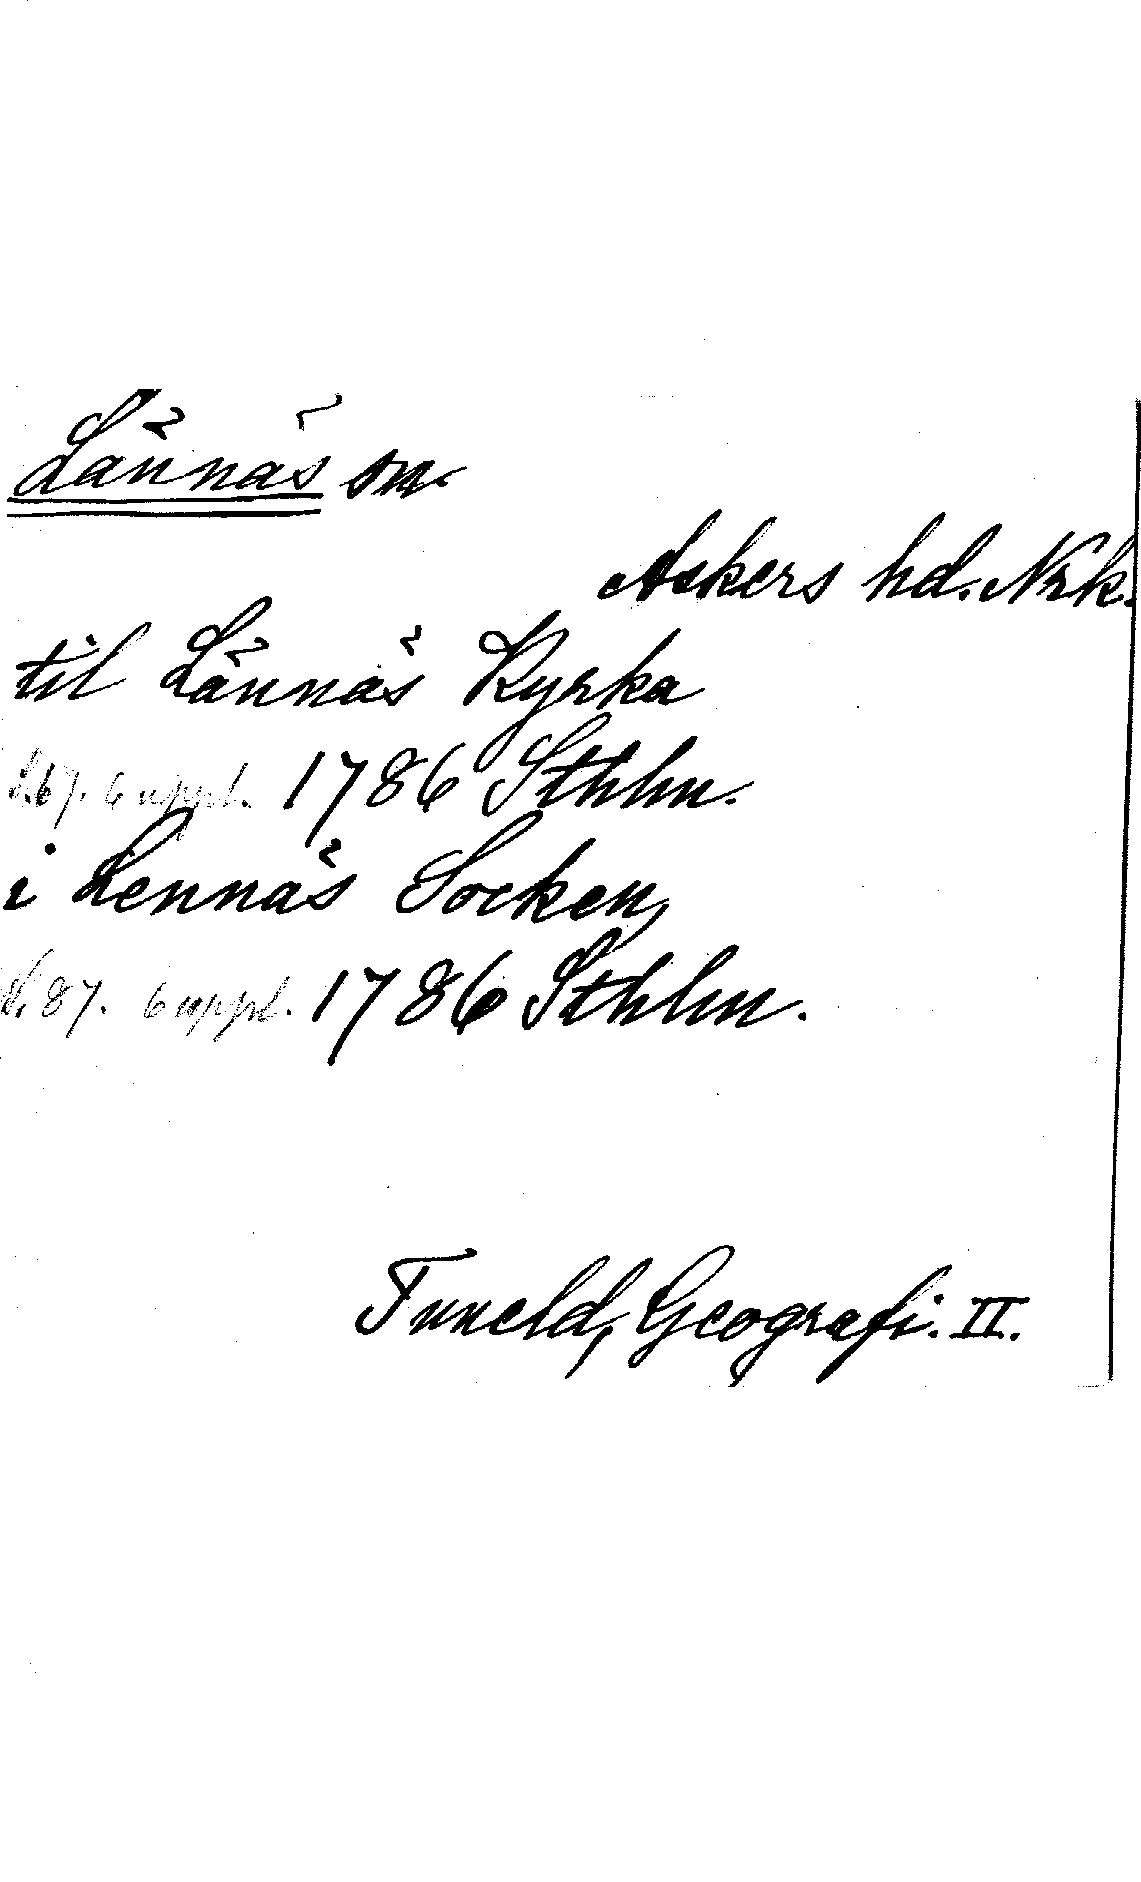 Lännäs sn.
Askers hd. Nrk.
til Lännäs Kyrka
S. 67. 6 uppl. 1786 Sthlm.
i Lennäs Socken,
S. 87. 6 uppl. 1786 Sthlm.
Tuneld, Geografi. II.